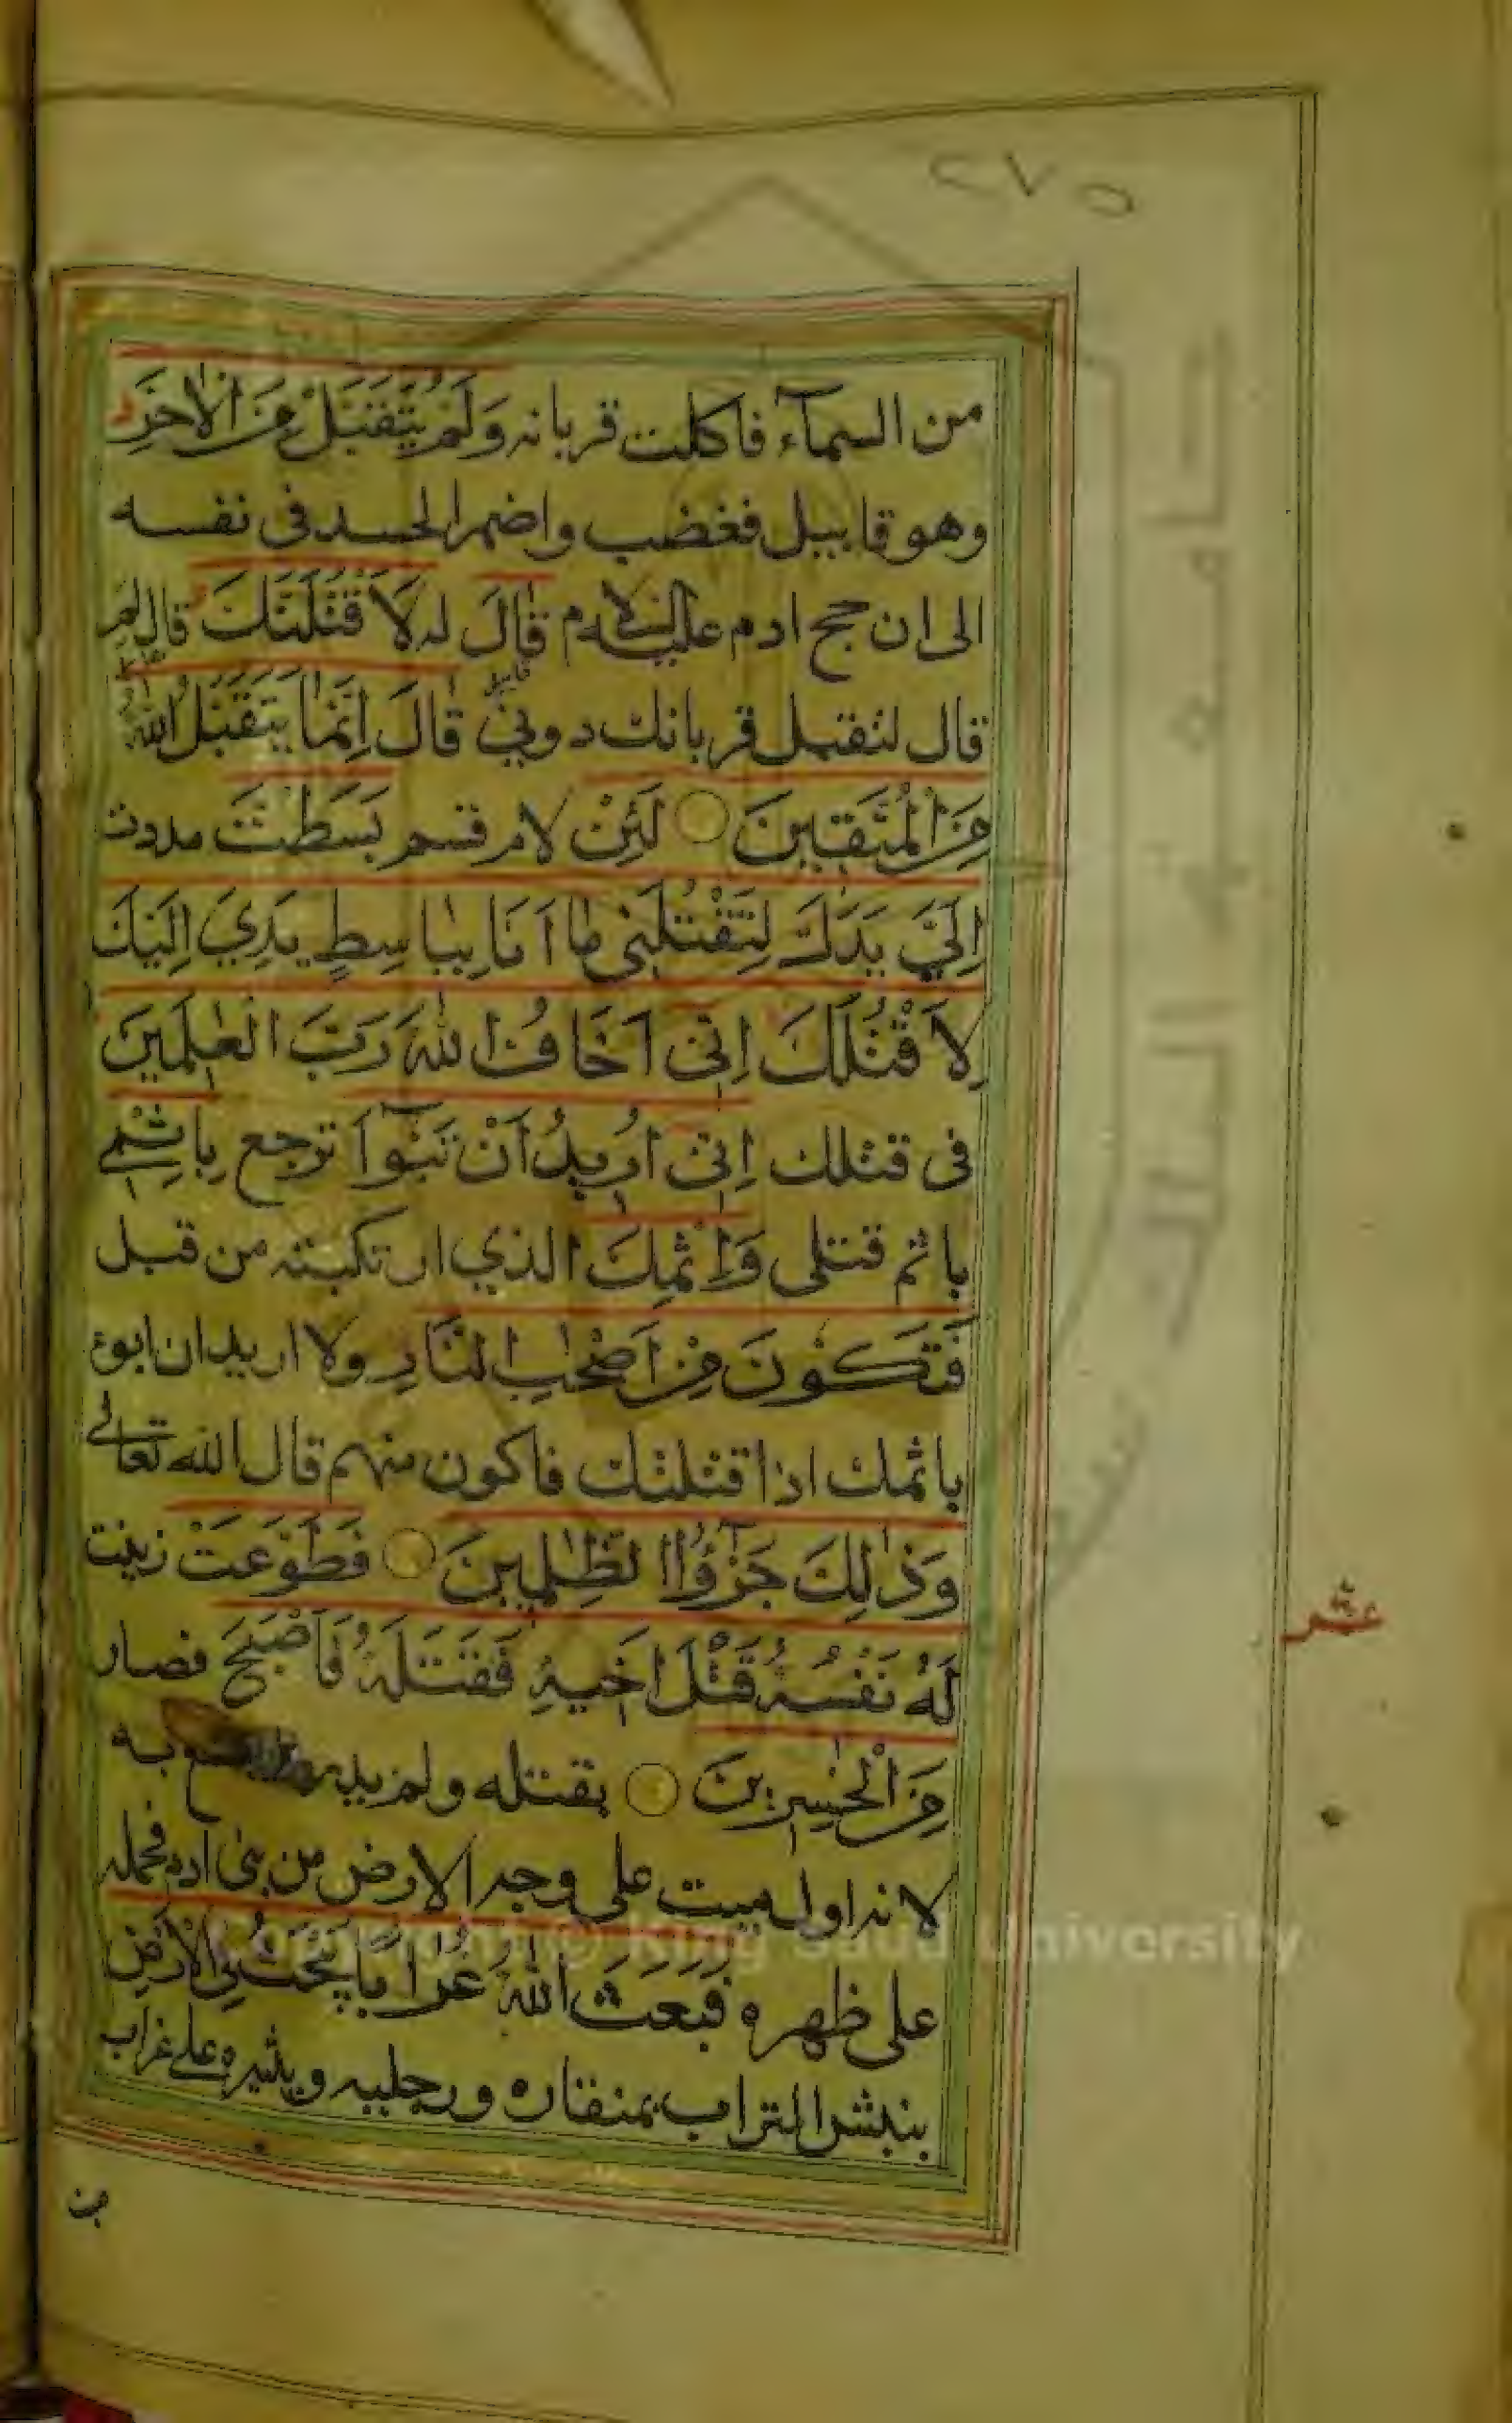 ٢٧٥
من السمآء فاكلت قربانه وَلَمْ يُتَقَبَّلْ مِنَ الْاٰخَرِ
وهو قابيل فغضب واضمر الحسد فى نفسه
الى ان حج ادم عليه السلام قَالَ له لَاَقْتُلَنَّكَ قال لم
قال لتقبل قربانك دوني قَالَ اِنَّمَا يَتَقَبَّلُ اللّٰهُ
مِنَ الْمُتَّقِينَ لَئِنْ لام قسم بَسَطْتَ مددت
اِلَيَّ يَدَكَ لِتَقْتُلَنِى مَا اَنَا بِبَاسِطٍ يَدِيَ اِلَيْكَ
لِاَقْتُلَكَ اِنِّى اَخَافُ اللّٰهَ رَبَّ الْعٰلَمِينَ
فى قتلك اِنِّى اُرِيدُ اَنْ تَبُوٓاَ ترجع بِاِثْمِي
باثم قتلى وَاِثْمِكَ الذي ارتكبته من قبل
فَتَكُونَ مِنْ اَصْحٰبِ النَّارِ ولا اريد ان ابوء
باثمك اذا قتلتك فاكون منهم قال الله تعالى
وَذٰلِكَ جَزٰٓؤُا الظّٰلِمِينَ فَطَوَّعَتْ زينت
لَهُ نَفْسُهُ قَتْلَ اَخِيهِ فَقَتَلَهُ فَاَصْبَحَ فصار
مِنَ الْخٰسِرِينَ بقتله ولم يدر به
لانه اول ميت على وجه الارض من بنى ادم فحمله
على ظهره فَبَعَثَ اللّٰهُ غُرَابًا يَبْحَثُ فِى الْاَرْضِ
ينبش التراب بمنقاره ورجليه ويثيره على غراب
عشر
Copyright © King Saud University